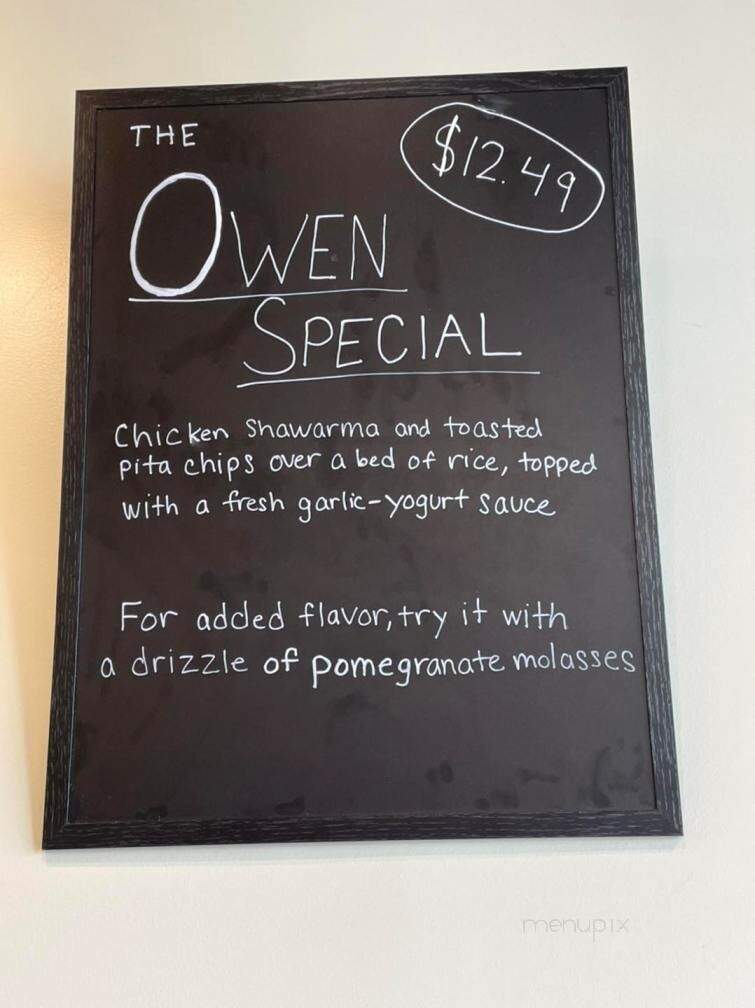 THE
$12.49
OWEN
SPECIAL
Chicken Shawarma and toasted
pita chips over a bed of rice, topped
with a fresh garlic-yogurt sauce
For added flavor, try it with
a drizzle of pomegranate molasses
menupix